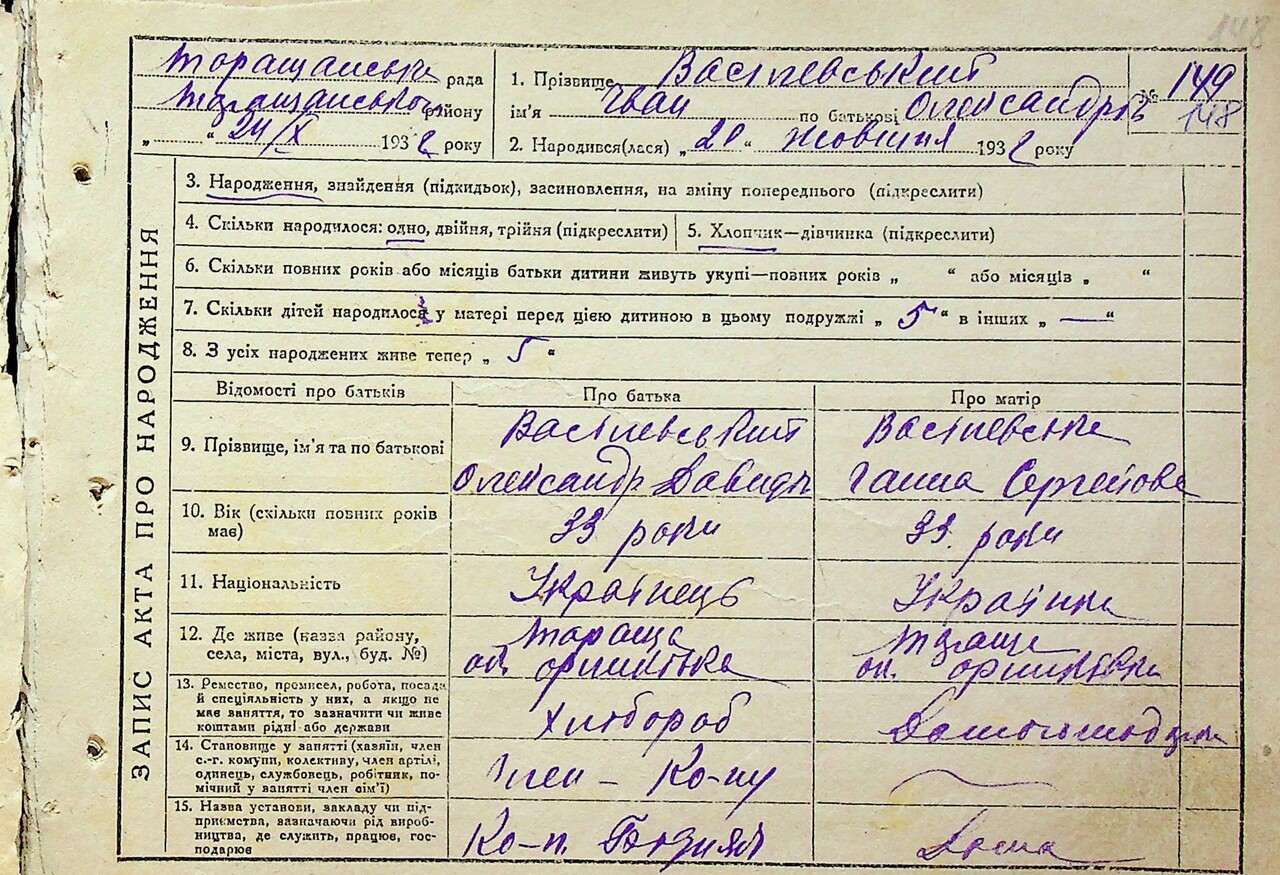 148
Таращанська рада
Таращанського району
„ “ 24/X 1932 року
1. Прізвище Васілевський
ім'я Іван по батькові Олександрів
№ 149
148
2. Народився(лася) „ 20 “ жовтня 1932 року
ЗАПИС АКТА ПРО НАРОДЖЕННЯ
3. Народження, знайдення (підкидьок), засиновлення, на зміну попереднього (підкреслити)
4. Скільки народилося: одно, двійня, трійня (підкреслити)
5. Хлопчик—дівчинка (підкреслити)
6. Скільки повних років або місяців батьки дитини живуть укупі—повних років „ “ або місяців „ “
7. Скільки дітей народилося у матері перед цією дитиною в цьому подружжі „ 5 “ в інших „ — “
8. З усіх народжених живе тепер „ 5 “
Відомості про батьків
Про батька
Про матір
9. Прізвище, ім'я та по батькові
Васілевський
Олександр Давидів
Васілевська
Ганна Сергеївна
10. Вік (скільки повних років
має)
33 роки
33 роки
11. Національність
Українець
Українка
12. Де живе (назва району,
села, міста, вул., буд. №)
Тараща
Тараща
13. Ремество, промисел, робота, посада
й спеціяльність у них, а якщо не
має заняття, то зазначити чи живе
коштами рідні або держави
Хлібороб
14. Становище у занятті (хазяїн, член
с.-г. комуни, колективу, член артілі,
одинець, службовець, робітник, по-
мічний у занятті член сім'ї)
Член - Ко-пу
15. Назва установи, закладу чи під-
приємства, зазначаючи рід вироб-
ництва, де служить, працює, гос-
подарює
Ко-п.
Дома